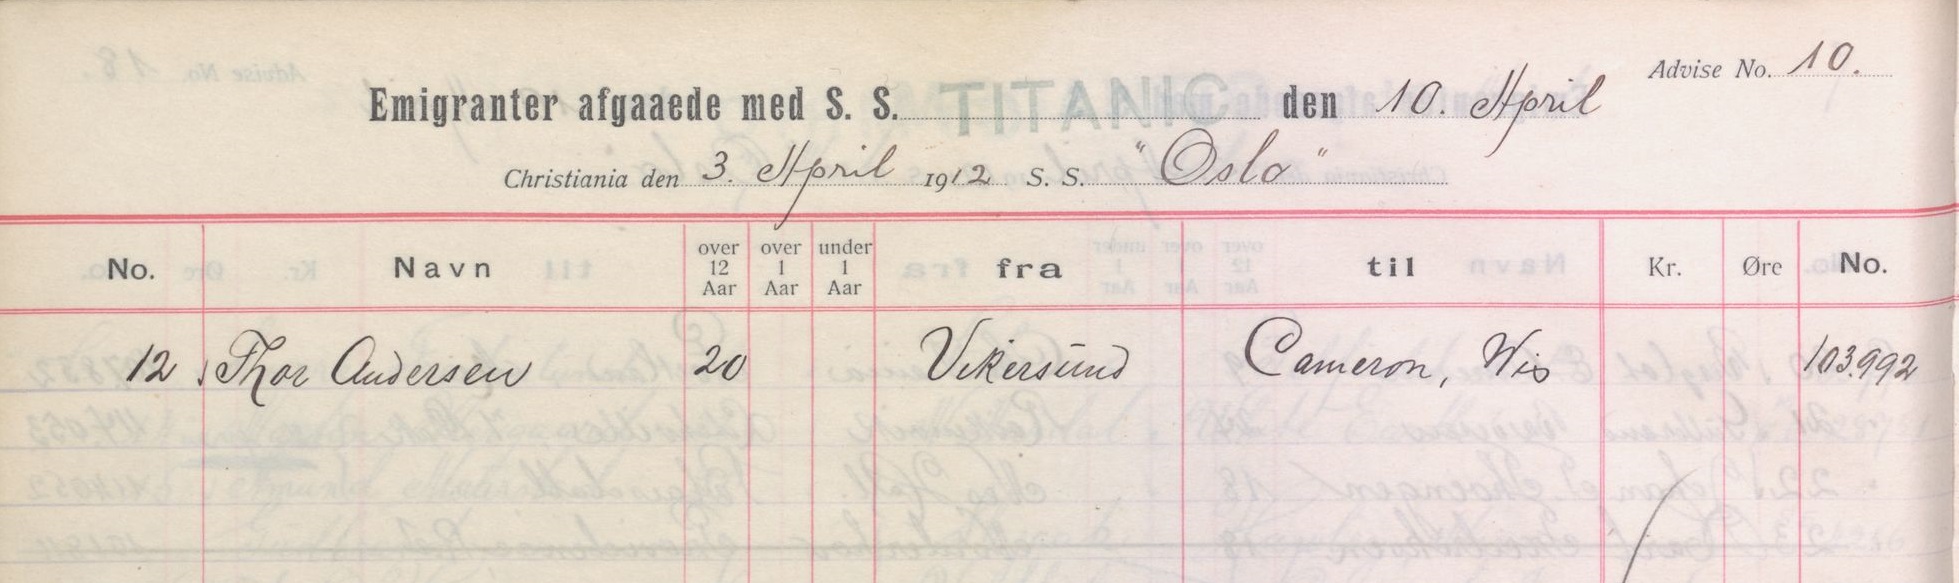 Advise No. 10.
Emigranter afgaaede med S. S. TITANIC den 10. April
Christiania den 3. April 1912 S. S. "Oslo"
No. Navn over 12 Aar over 1 Aar under 1 Aar fra til Kr. Øre No.
12 Thor Andersen 20 Vikersund Cameron, Wis 103.992